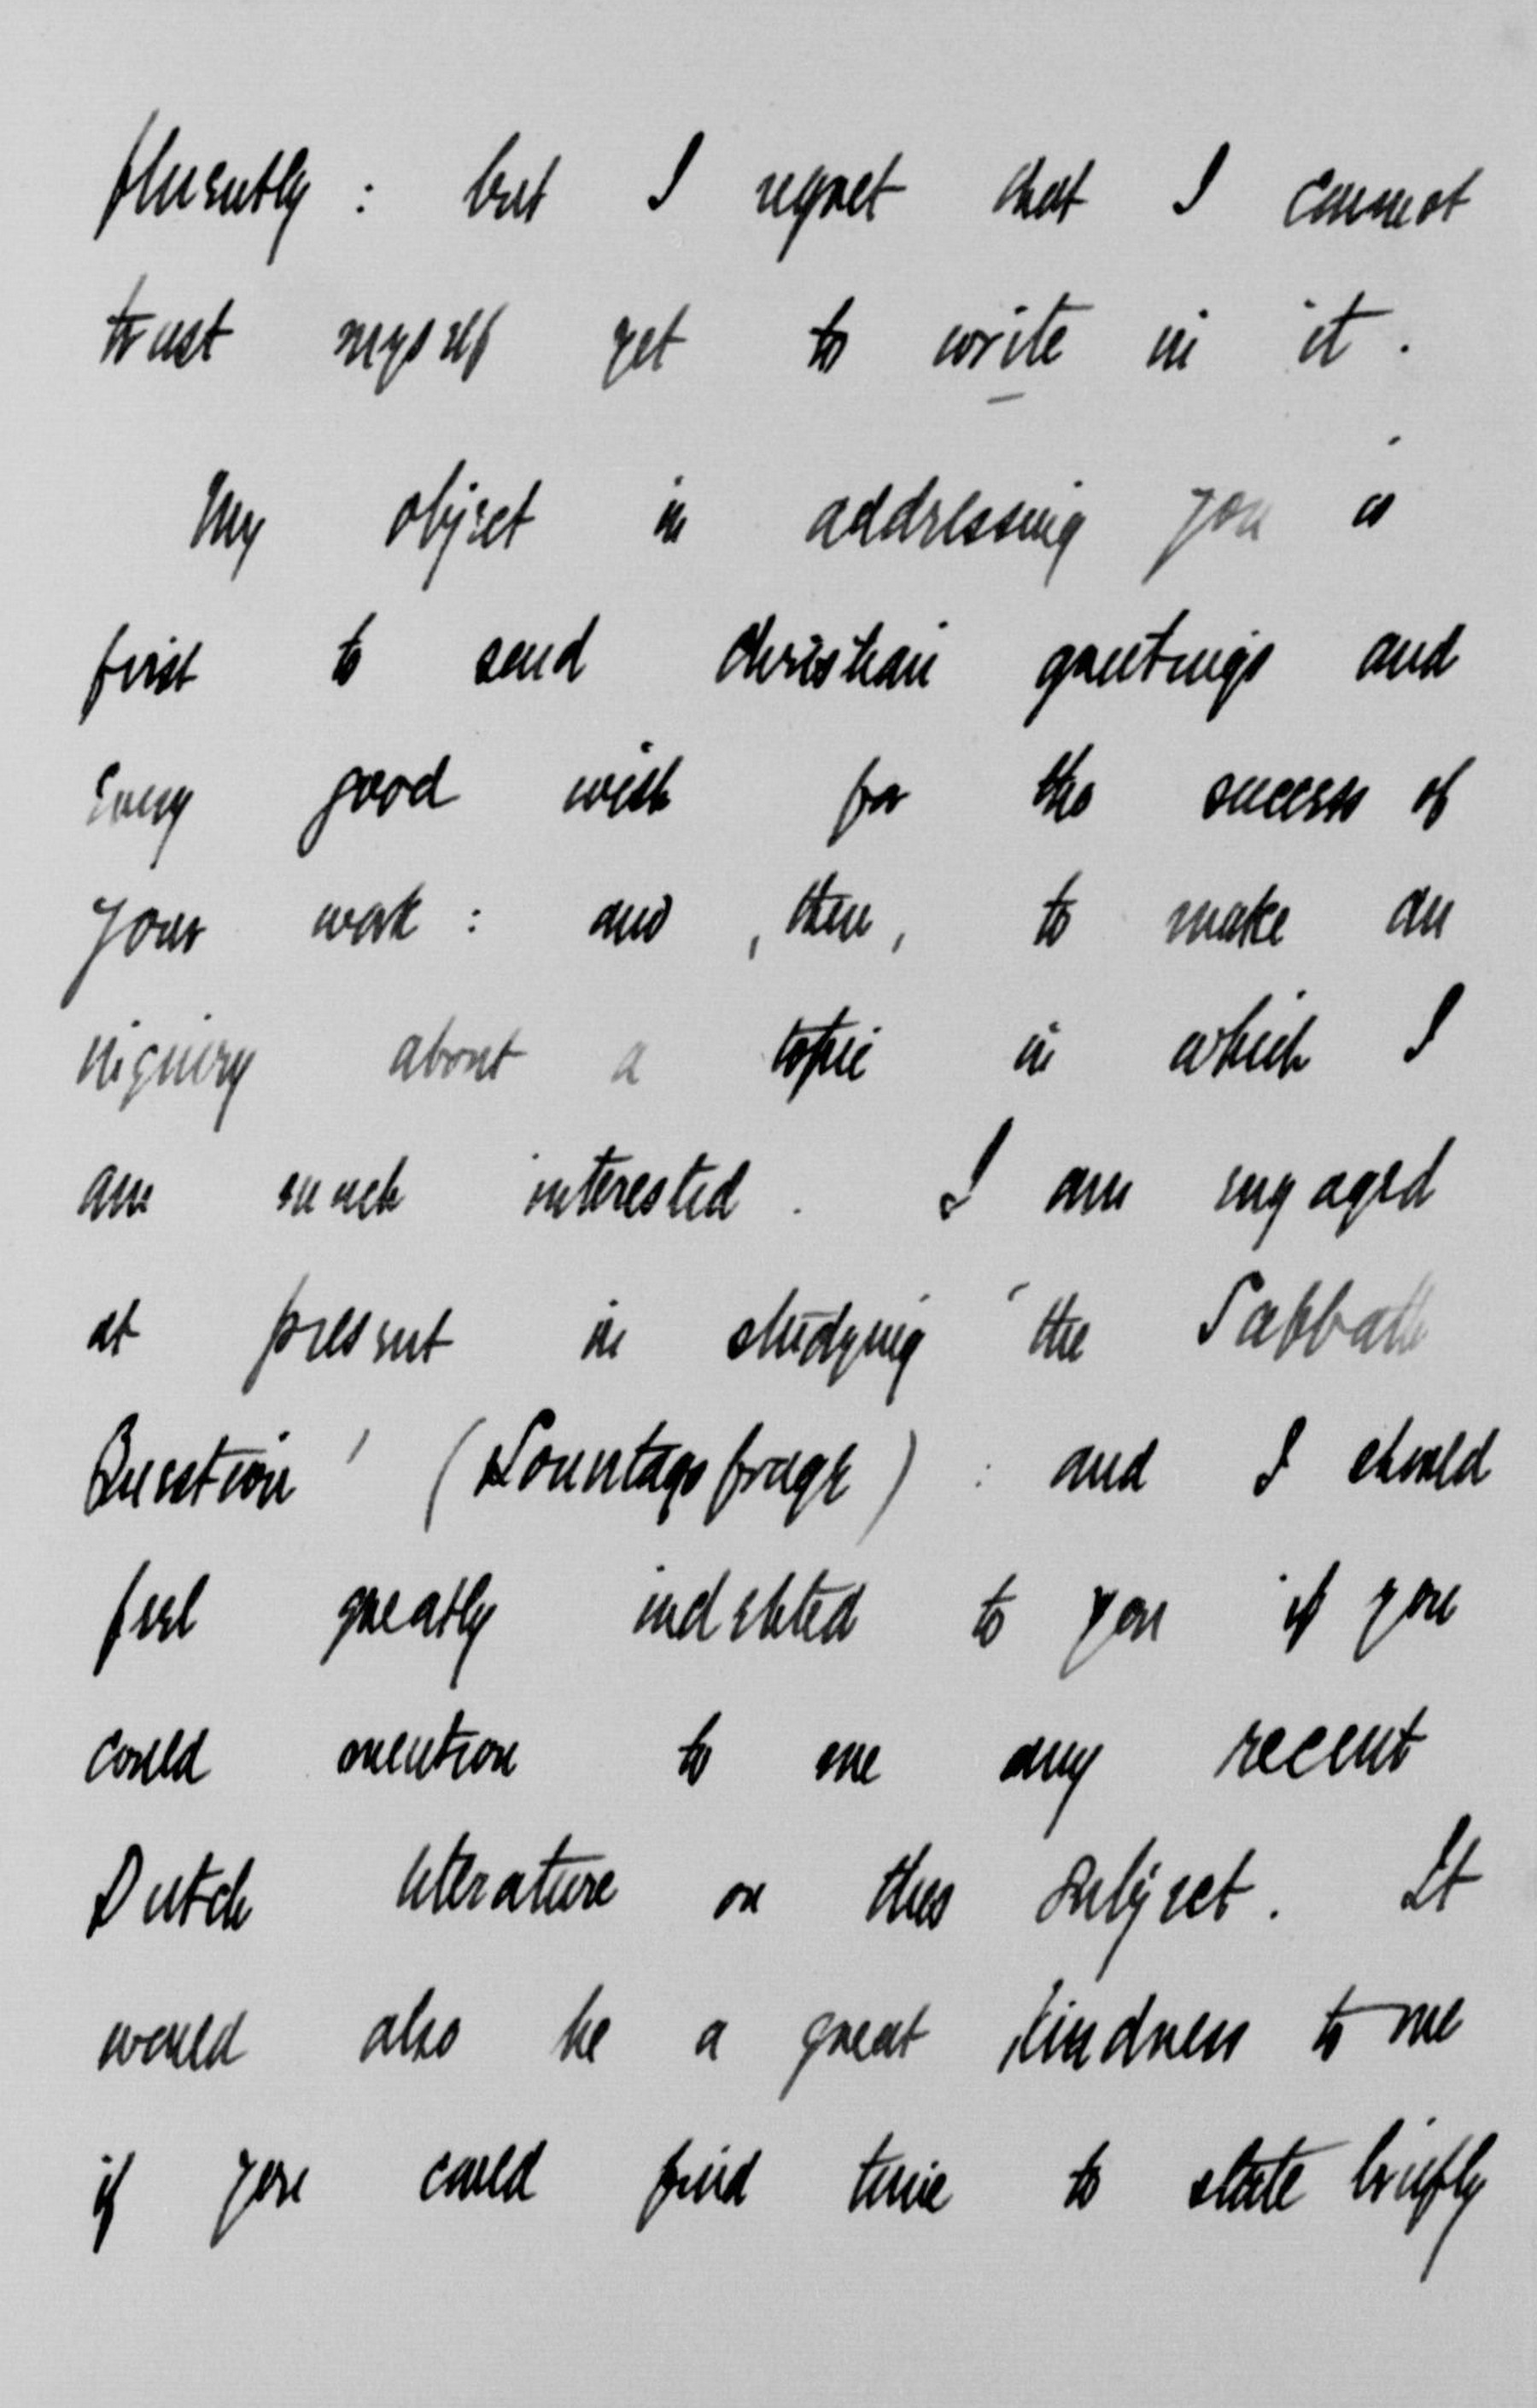 fluently : but I regret that I cannot
trust myself yet to write in it .
My object in addressing you is
first to send Christian greetings and
every good wish for the success of
your work : and , then , to make an
inquiry about a topic in which I
am much interested . I am engaged
at present in studying 'the Sabbath
Question' (Sonntagsfrage) : and I should
feel greatly indebted to you if you
could mention to me any recent
Dutch literature on this subject . It
would also be a great kindness to me
if you could find time to state briefly